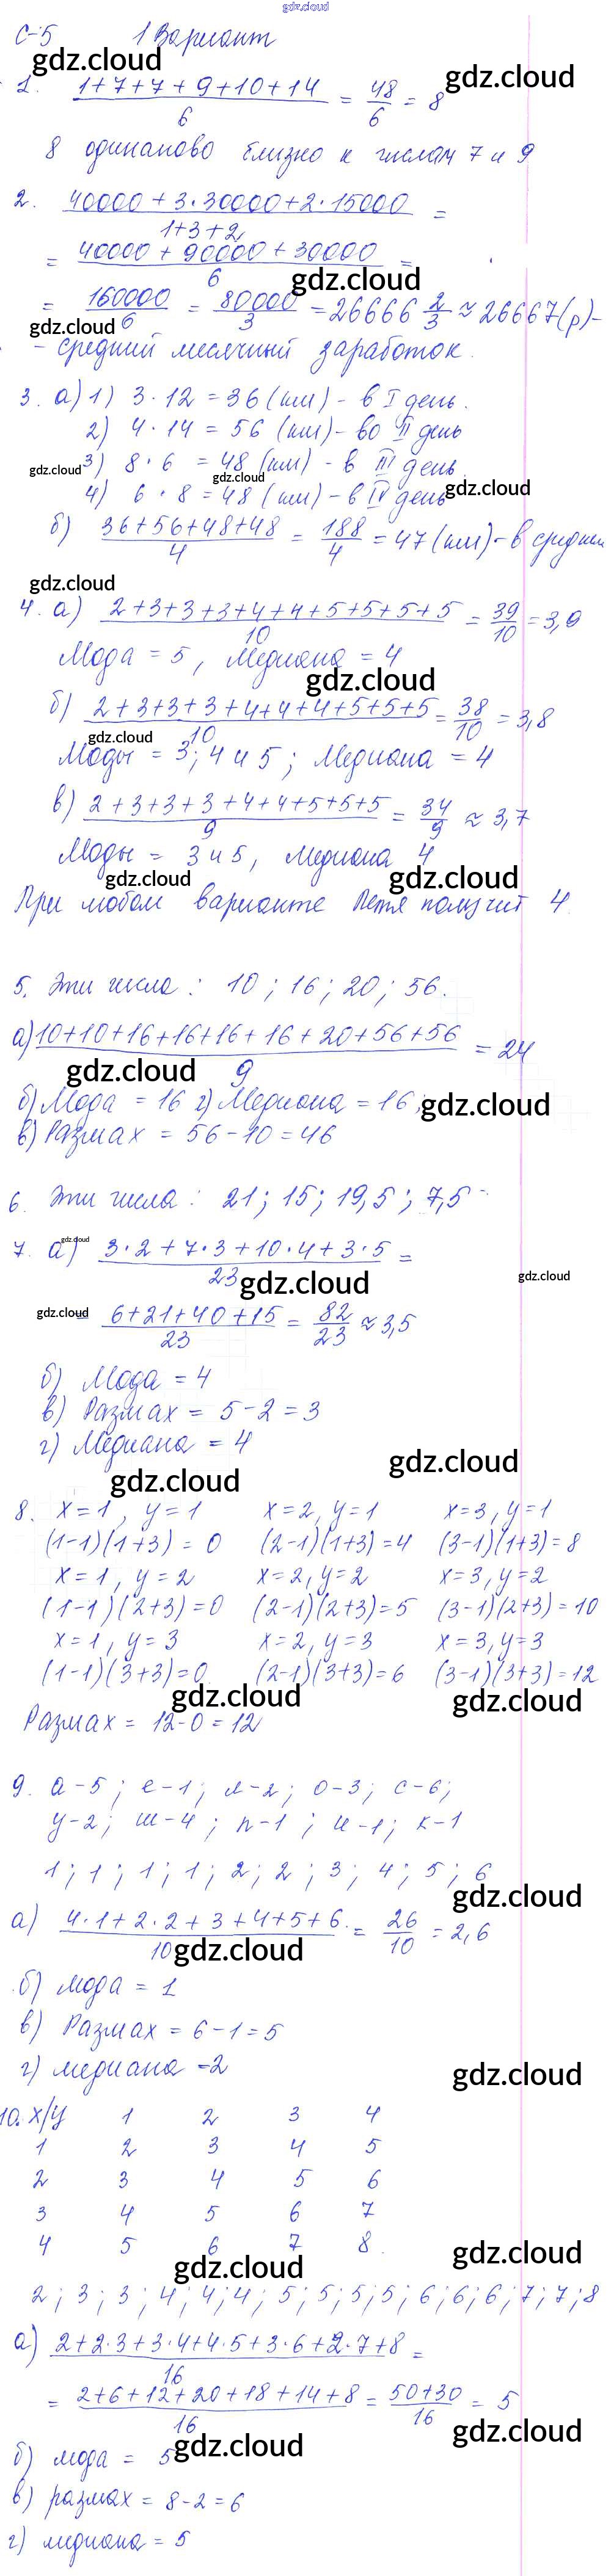 gdz.cloud
С-5 1 Вариант
gdz.cloud
gdz.cloud
1. (1+7+7+9+10+14)/6 = 48/6 = 8
8 одинаково близко к числам 7 и 9
2. (40000+3·30000+2·15000)/(1+3+2) =
= (40000+90000+30000)/6 =
gdz.cloud
= 160000/6 = 80000/3 = 26666 2/3 ≈ 26667(р)-
gdz.cloud
- средний месячный заработок.
3. а) 1) 3·12=36(км) - в I день.
2) 4·14=56 (км) - во II день
gdz.cloud 3) 8·6 =48 (км) - в III день.
gdz.cloud
gdz.cloud
4) 6·8=48 (км) - в IV день
б) (36+56+48+48)/4 = 188/4 = 47(км)-в средне
gdz.cloud
4. а) (2+3+3+3+4+4+5+5+5+5)/10 = 39/10 = 3,9
Мода = 5, Медиана = 4
gdz.cloud
б) (2+3+3+3+4+4+4+5+5+5)/10 = 38/10 = 3,8
gdz.cloud
Моды = 3; 4 и 5; Медиана = 4
в) (2+3+3+3+4+4+5+5+5)/9 = 34/9 ≈ 3,7
Моды = 3 и 5, Медиана 4
gdz.cloud
gdz.cloud
При любом варианте Петя получит 4
5. Эти числа: 10; 16; 20; 56.
а) (10+10+16+16+16+16+20+56+56)/9 = 24
gdz.cloud
б) Мода = 16 г) Медиана = 16;
gdz.cloud
в) Размах = 56-10=46
6. Эти числа: 21; 15; 19,5; 7,5
7. а) (3·2+7·3+10·4+3·5)/23 =
gdz.cloud
gdz.cloud
gdz.cloud
gdz.cloud
= (6+21+40+15)/23 = 82/23 ≈ 3,5
б) Мода = 4
в) Размах = 5-2=3
г) Медиана = 4
gdz.cloud
gdz.cloud
8. x=1, y=1 x=2, y=1 x=3, y=1
(1-1)(1+3)=0 (2-1)(1+3)=4 (3-1)(1+3)=8
x=1, y=2 x=2, y=2 x=3, y=2
(1-1)(2+3)=0 (2-1)(2+3)=5 (3-1)(2+3)=10
x=1, y=3 x=2, y=3 x=3, y=3
(1-1)(3+3)=0 (2-1)(3+3)=6 (3-1)(3+3)=12
gdz.cloud
gdz.cloud
Размах = 12-0=12
9. а-5; е-1; л-2; о-3; с-6;
у-2; ш-4; п-1; и-1; к-1
1; 1; 1; 1; 2; 2; 3; 4; 5; 6
gdz.cloud
а) (4·1+2·2+3+4+5+6)/10 = 26/10 = 2,6
gdz.cloud
б) мода = 1
в) Размах = 6-1=5
г) медиана -2
gdz.cloud
10. x/y 1 2 3 4
1 2 3 4 5
2 3 4 5 6
3 4 5 6 7
4 5 6 7 8.
gdz.cloud
gdz.cloud
2; 3; 3; 4; 4; 4; 5; 5; 5; 5; 6; 6; 6; 7; 7; 8
а) (2+2·3+3·4+4·5+3·6+2·7+8)/16 =
= (2+6+12+20+18+14+8)/16 = (50+30)/16 = 5
gdz.cloud
gdz.cloud
б) мода = 5
в) размах = 8-2=6
г) медиана = 5